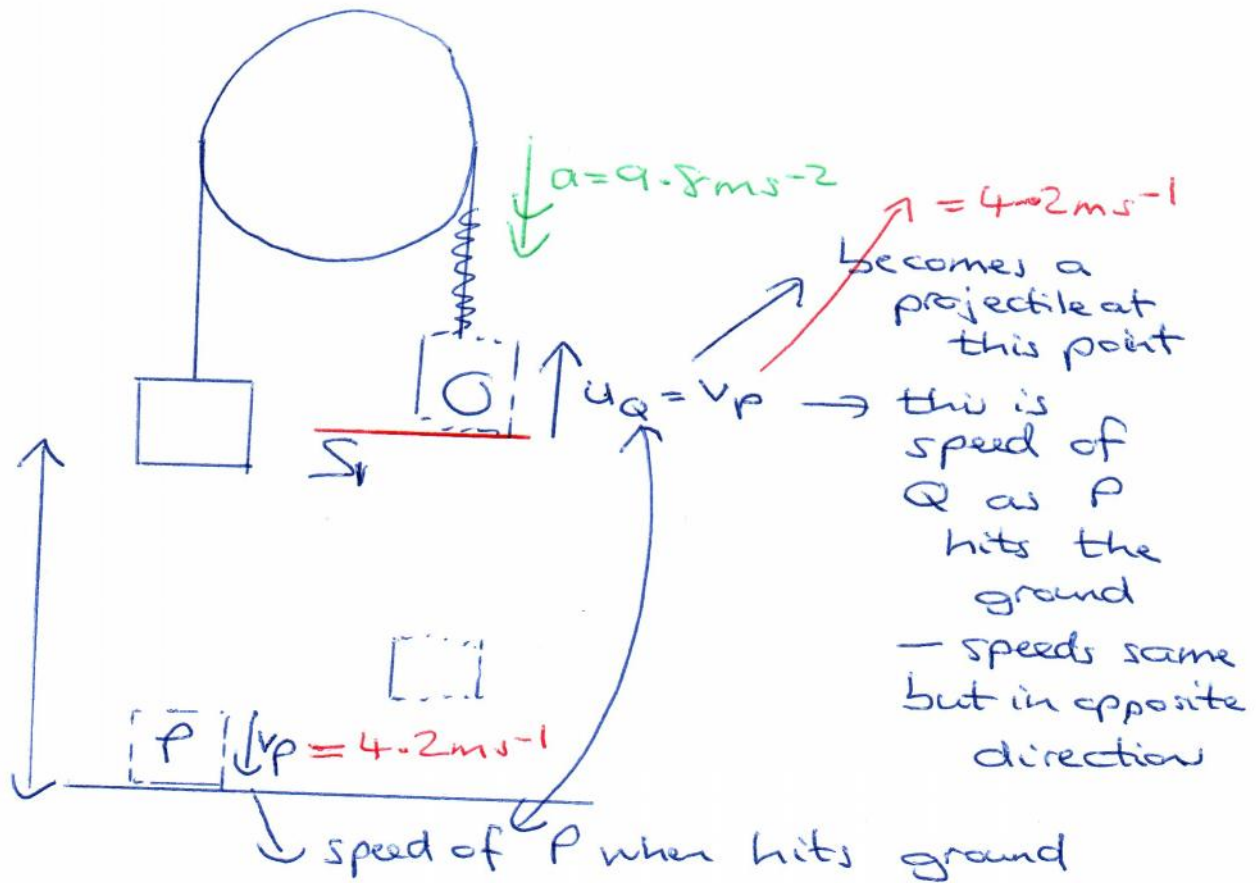 a = 9.8ms⁻²
= 4.2ms⁻¹
becomes a
projectile at
this point
Q
u_Q = v_P → this is
speed of
Q as P
hits the
ground
— speeds same
but in opposite
direction
P
v_P = 4.2ms⁻¹
speed of P when hits ground